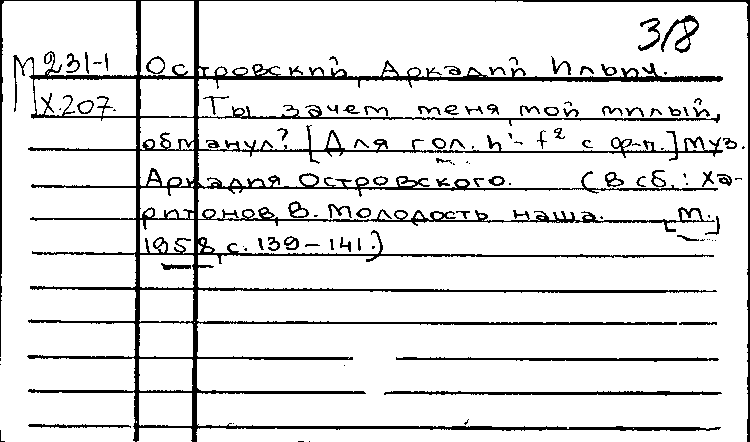 318
М 231-1 Островский, Аркадий Ильич.
X.207. Ты зачем меня, мой милый,
обманул? [Для гол. h¹- f² с ф-п.] Муз.
Аркадия Островского. (В сб.: Ха-
ритонов, В. Молодость наша. [М.]
1958, с. 139-141.)